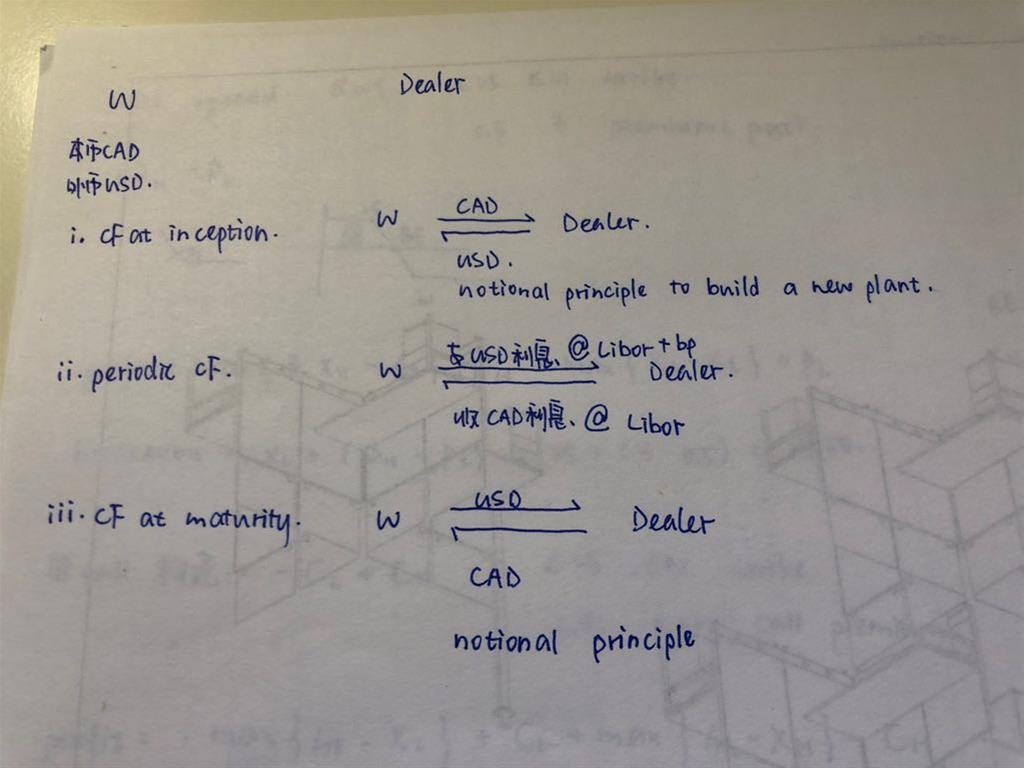 W Dealer
本币CAD
外币USD.
i. CF at inception. W CAD Dealer.
USD.
notional principle to build a new plant.
ii. periodic CF. W 支USD利息、@ Libor + bp Dealer.
收CAD利息、@ Libor
iii. CF at maturity. W USD Dealer
CAD
notional principle